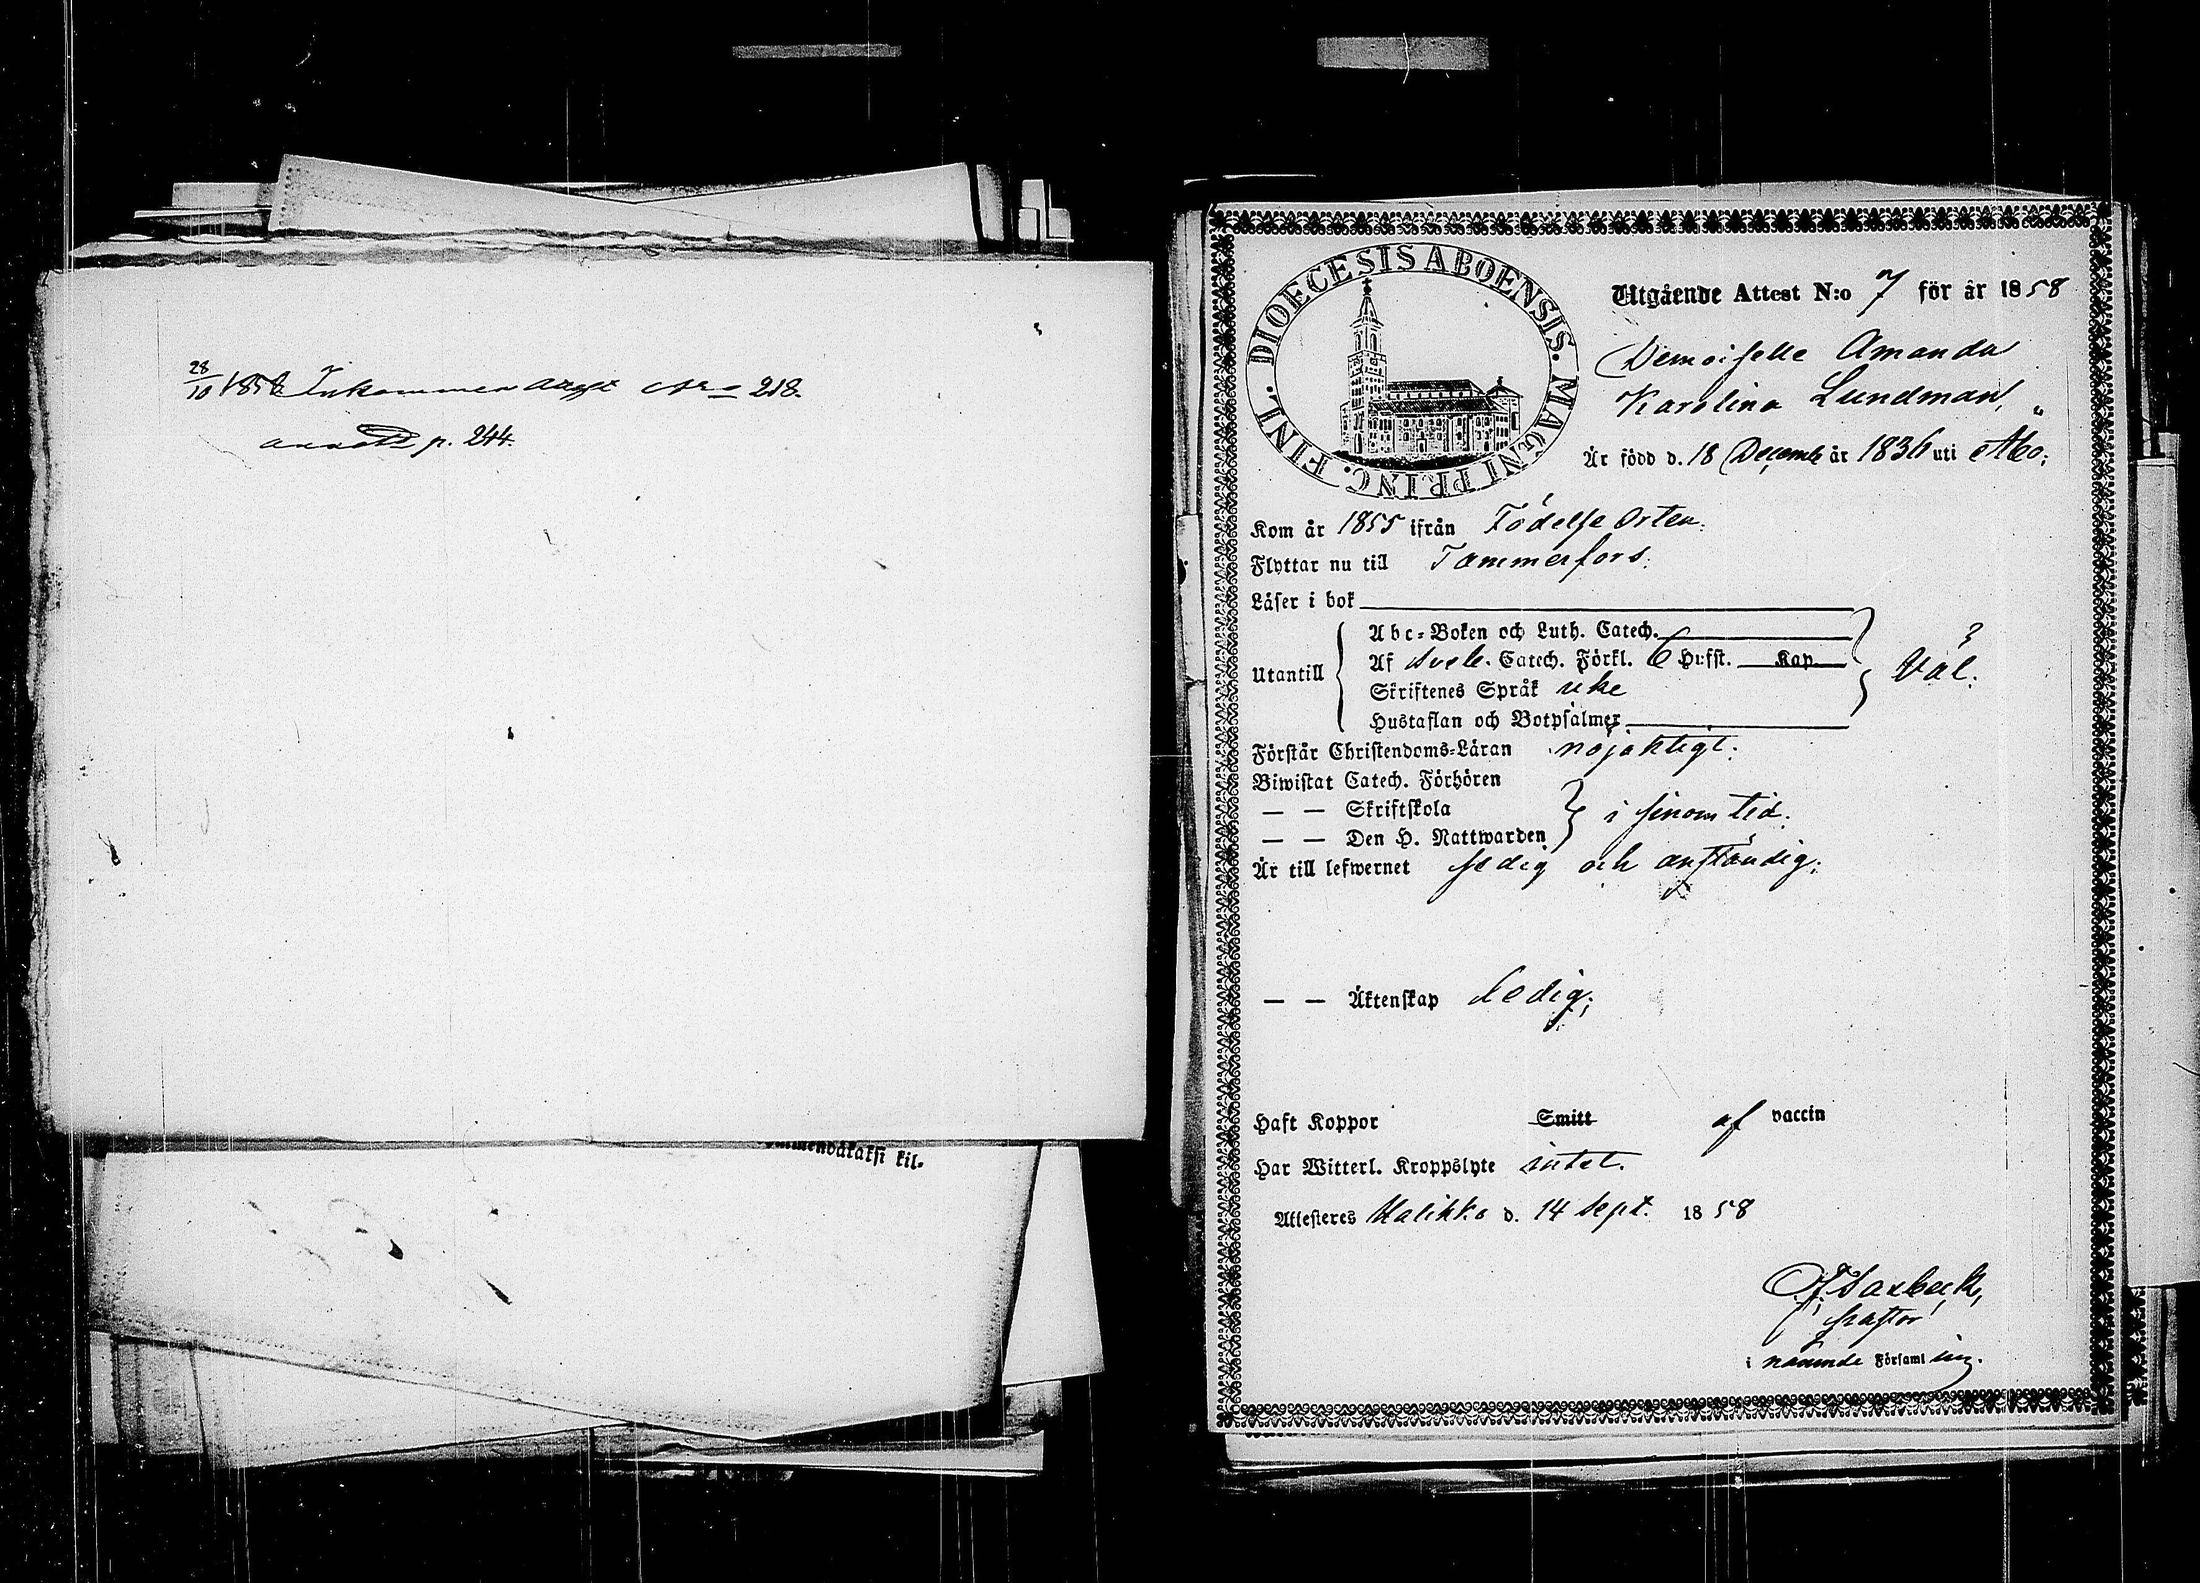 28/10 1858 Inkommen attest No 218.
annott p. 244.
mmendakaksi kil-
DIOECESIS ABOENSIS. MAGNI PRINC. FINL.
Utgående Attest N:o 7 för år 1858
Demoiselle Amanda
Karolina Lundman,
Är född d. 18 Decembr år 1836 uti Åbo;
Kom år 1855 ifrån Födelse Orten.
Flyttar nu till Tammerfors.
Läser i bok
Abc-Boken och Luth. Catech.
Utantill Af Sveb. Catech. Förkl. 6 Hufst. Kap. Väl.
Skriftenes Språk icke
Hustaflan och Botpsalmer
Förstår Christendoms-Läran nöjaktigt.
Biwistat Catech. Förhören
— — Skriftskola i sinom tid.
— — Den H. Nattwarden
Är till lefwernet sedig och anständig;
— — Äktenskap ledig;
Haft Koppor Smitt af vaccin
Har Witterl. Kroppslyte intet.
Attesteres Halikko d. 14 Sept. 1858
Saxbeck,
Pastor
i nämnde Församling.